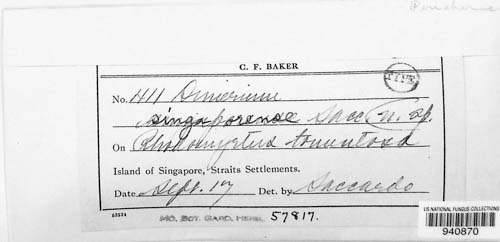 C. F. BAKER
TYPE
No. 411 Dimerium
singaporense Sacc. n. sp.
On Rhodomyrtus tomentosa
Island of Singapore, Straits Settlements.
Date Sept. 17 Det. by Saccardo
63534
MO. BOT. GARD. HERB. 57817.
US NATIONAL FUNGUS COLLECTIONS
940870